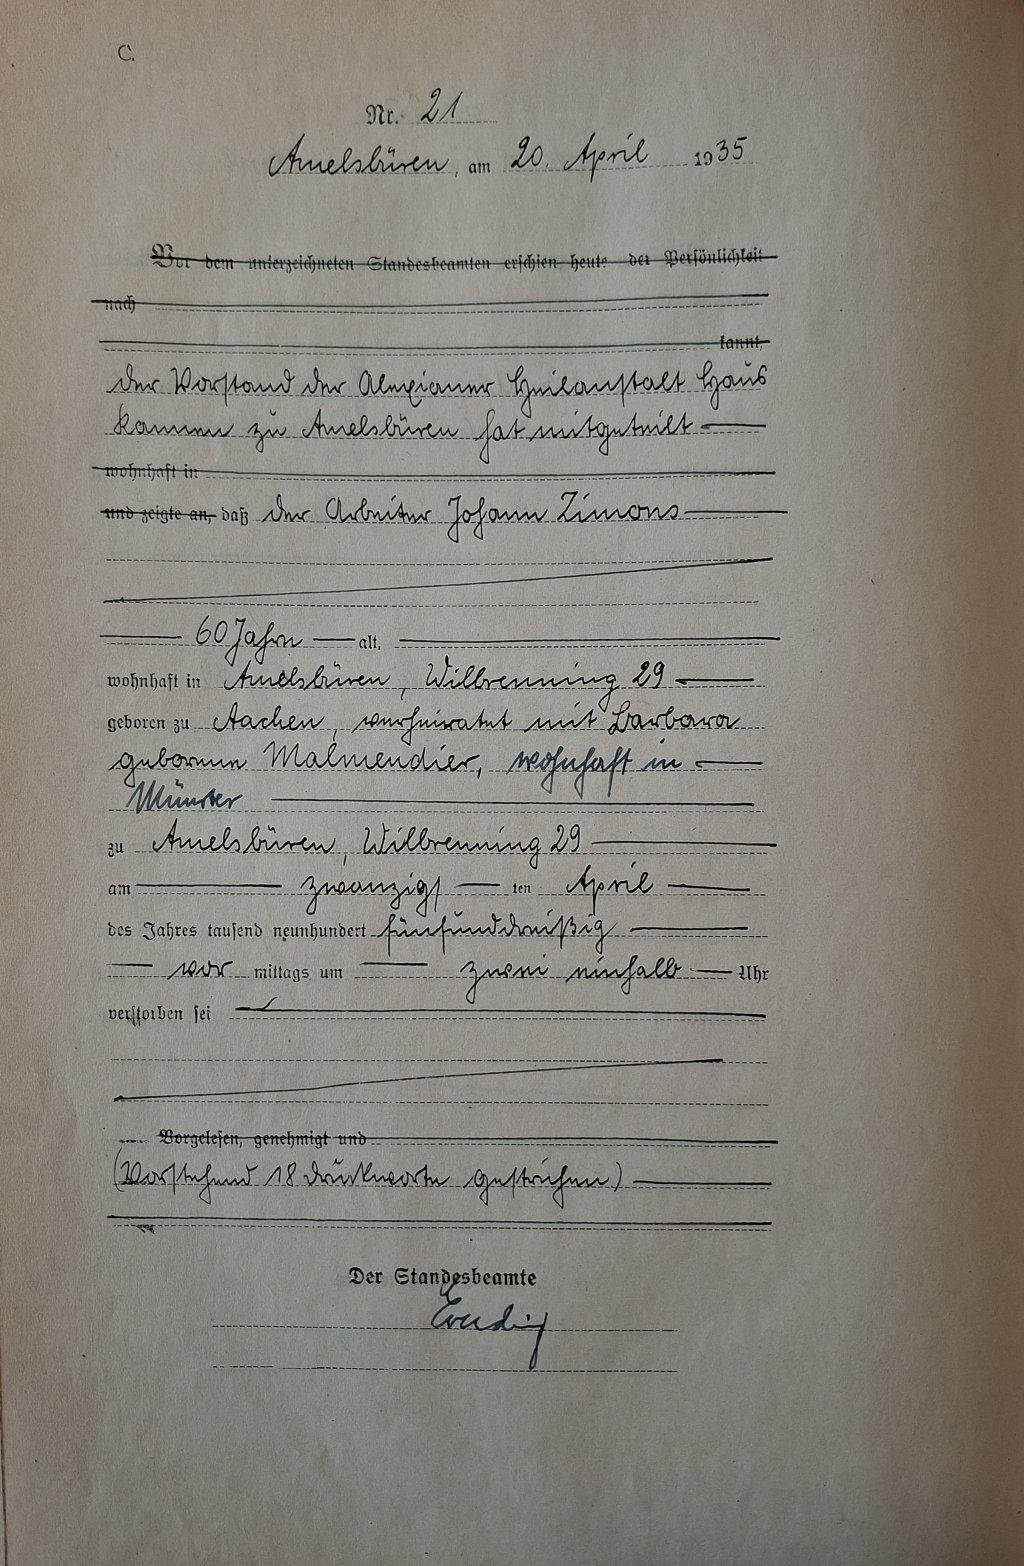 C.
Nr. 21
Amelsbüren, am 20. April 1935
Vor dem unterzeichneten Standesbeamten erschien heute der Persönlichkeit
nach
kannt,
der Vorstand der Alexianer Heilanstalt Haus
Kannen zu Amelsbüren hat mitgeteilt
wohnhaft in
und zeigte an, daß der Arbeiter Johann Zimons
60 Jahre alt,
wohnhaft in Amelsbüren, Wilbrenning 29
geboren zu Aachen, verheiratet mit Barbara
geborene Malmendier, wohnhaft in
Münster
zu Amelsbüren, Wilbrenning 29
am zwanzigsten April
des Jahres tausend neunhundert fünfunddreißig
vor mittags um zwei einhalb Uhr
verstorben sei
Vorgelesen, genehmigt und
(Vorstehend 18 Druckworte gestrichen)
Der Standesbeamte